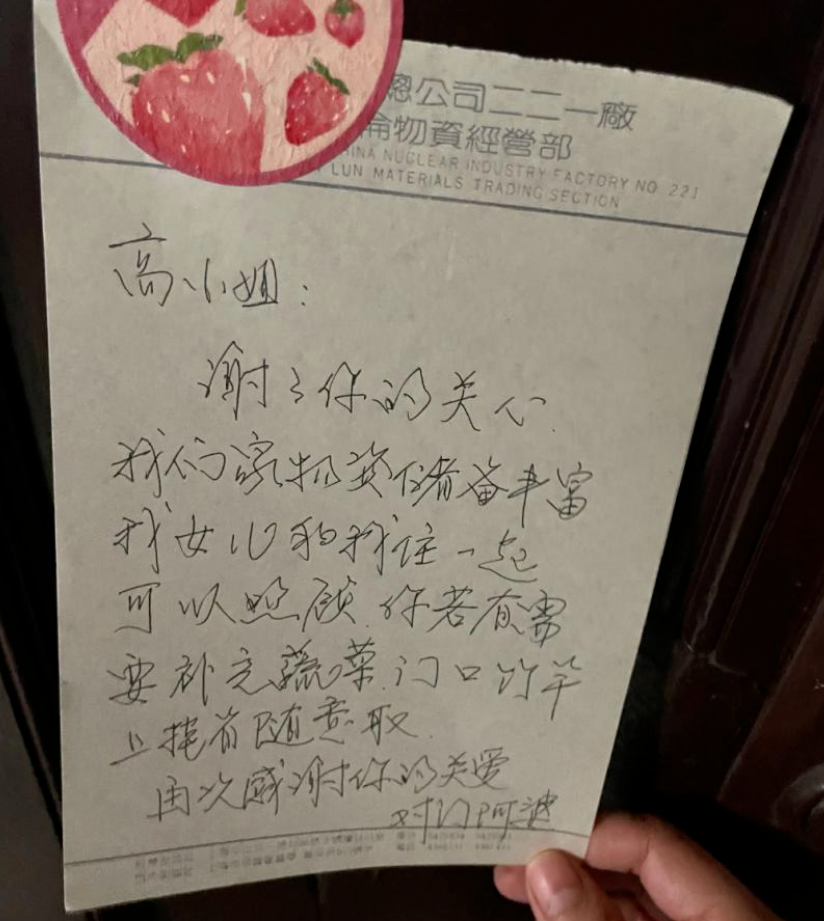 總公司二二一廠
侖物資經營部
HINA NUCLEAR INDUSTRY FACTORY NO. 221
LUN MATERIALS TRADING SECTION
高小姐:
谢谢你的关心.
我们家物资储备丰富
我女儿和我住一起
可以照顾.你若有需
要补充蔬菜.门口竹竿
上挂着随意取.
再次感谢你的关爱
对门阿婆